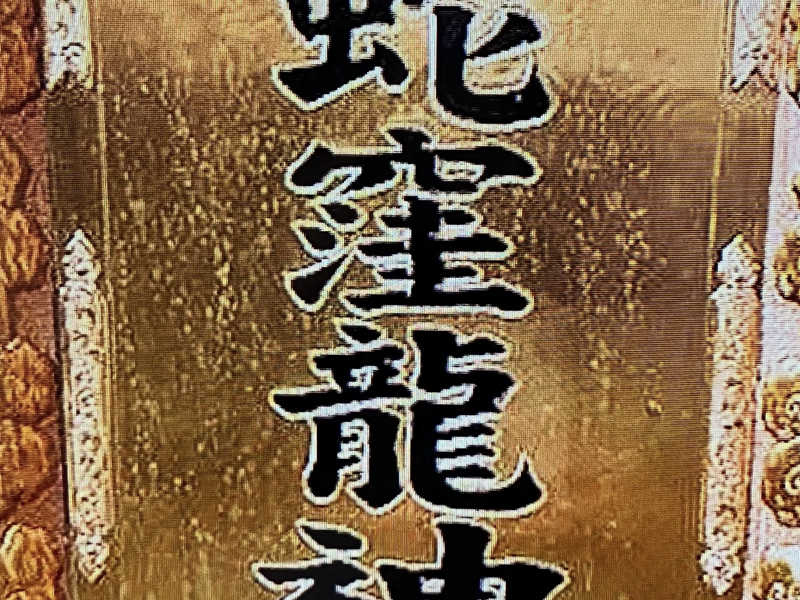 蛇窪龍神